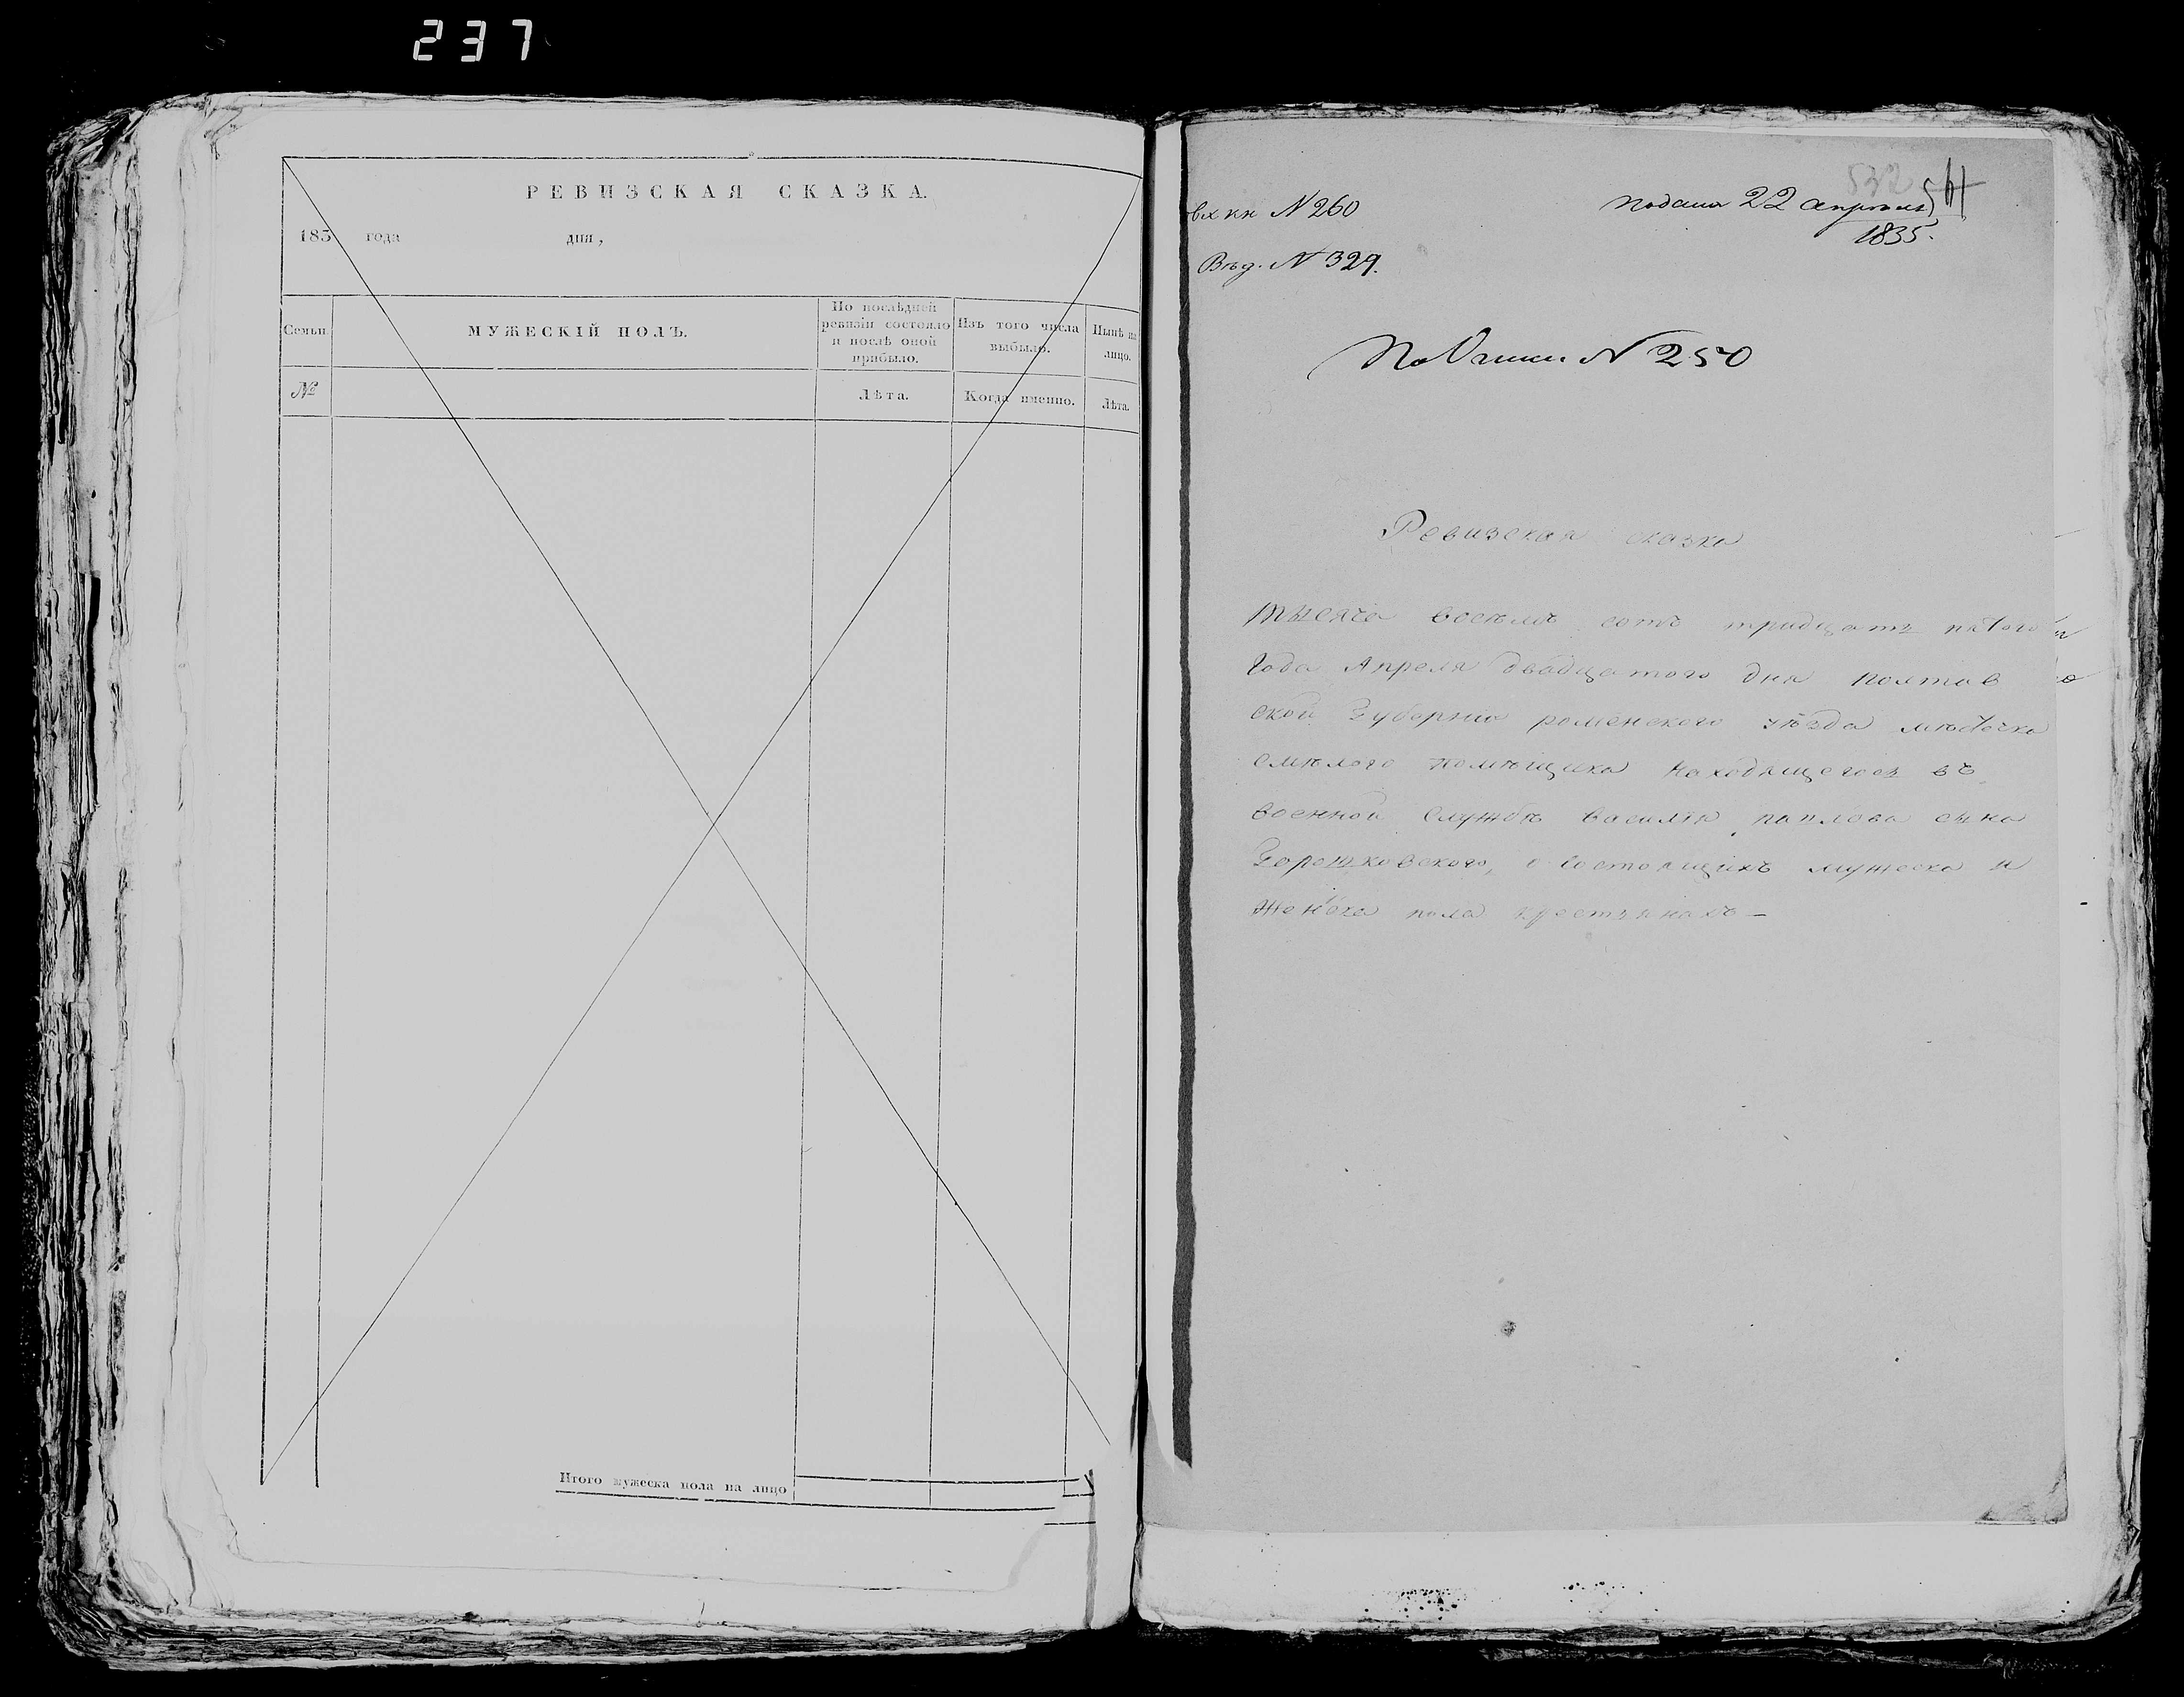 237
РЕВИЗСКАЯ СКАЗКА.
183 года дня,
Семьи.
МУЖЕСКІЙ ПОЛЪ.
По послѣдней ревизіи состояло и послѣ оной прибыло.
Изъ того числа выбыло.
Нынѣ на лицо.
№
Лѣта.
Когда именно.
Лѣта.
Итого мужеска пола на лицо
532
вх кн N 260
Подана 22 апреля
1835.
Вѣд. N 329.
N 250
Ревизская сказка
Тысяча восемь сотъ тридцать пятого
года Апреля двадцатого дня полтав
ской Губерніи роменского уѣзда мѣстечка
смѣлого помѣщика находящегося въ
военной службѣ василія павлова сына
Горошковского, о состоящихъ мужеска и
женска пола крестьянахъ —